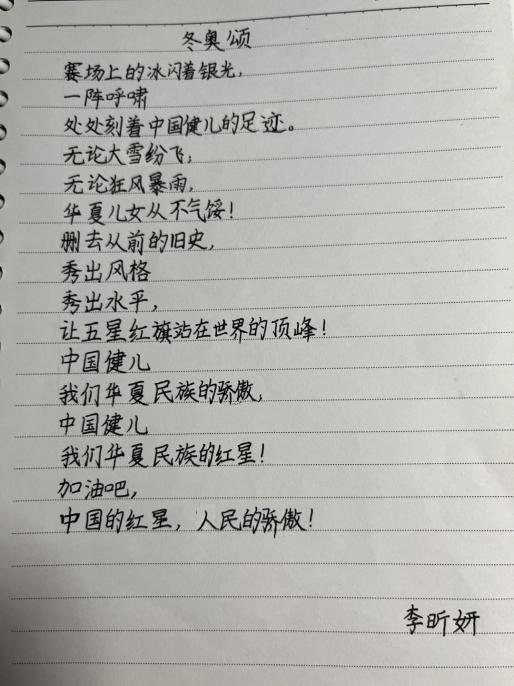 冬奥颂
赛场上的冰闪着银光，
一阵呼啸
处处刻着中国健儿的足迹。
无论大雪纷飞，
无论狂风暴雨，
华夏儿女从不气馁！
删去从前的旧史，
秀出风格
秀出水平，
让五星红旗站在世界的顶峰！
中国健儿
我们华夏民族的骄傲，
中国健儿
我们华夏民族的红星！
加油吧，
中国的红星，人民的骄傲！
李昕妍